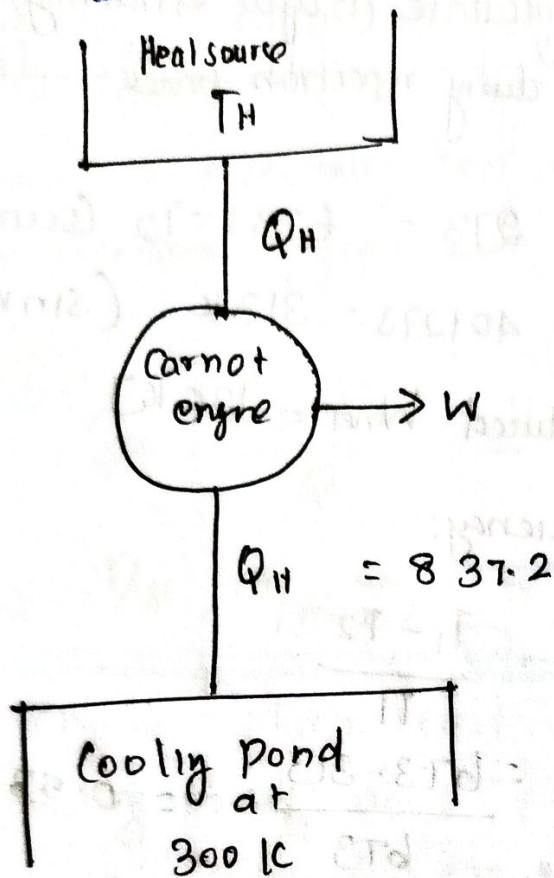 Heal source
TH
QH
Carnot
engre
W
QH = 837.2
Cooly Pond
at
300 K